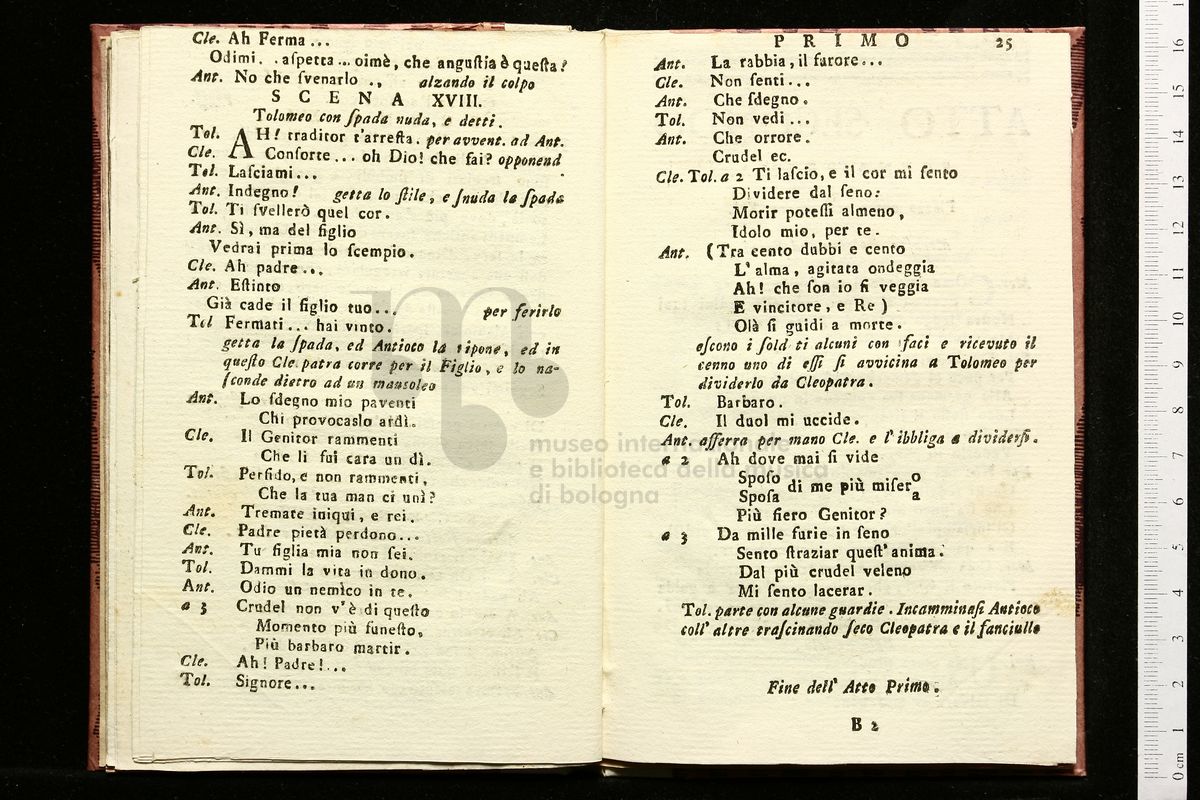 Cle. Ah Ferma...
Odimi. . aſpetta ... oimè, che anguſtia è queſta?
Ant. No che ſvenarlo .. alzando il colpo
SCENA XVIII.
Tolomeo con ſpada nuda, e detti.
Tol. AH! traditor t'arreſta. per avvent. ad Ant.
Cle. Conſorte... oh Dio! che fai? opponend
Tol. Laſciami...
Ant. Indegno! getta lo ſtile, e ſnuda la ſpada
Tol. Ti ſvellerò quel cor.
Ant. Sì, ma del figlio
Vedrai prima lo ſcempio.
Cle. Ah padre...
Ant. Eſtinto
Già cade il figlio tuo... per ferirlo
Tol Fermati... hai vinto.
getta la ſpada, ed Antioco la ripone, ed in
queſto Cleopatra corre per il Figlio, e lo na-
ſconde dietro ad un mauſoleo
Ant. Lo ſdegno mio paventi
Chi provocaslo ardì.
Cle. Il Genitor rammenti
Che li fui cara un dì.
Tol. Perfido, e non rammenti,
Che la tua man ci unì?
Ant. Tremate iniqui, e rei.
Cle. Padre pietà perdono...
Ant. Tu figlia mia non ſei.
Tol. Dammi la vita in dono.
Ant. Odio un nemìco in te.
a 3 Crudel non v'è di queſto
Momento più funeſto,
Più barbaro martir.
Cle. Ah! Padre!...
Tol. Signore...
PRIMO 25
Ant. La rabbia, il furore...
Cle. Non ſenti...
Ant. Che ſdegno.
Tol. Non vedi...
Ant. Che orrore.
Crudel ec.
Cle. Tol. a 2 Ti laſcio, e il cor mi ſento
Dividere dal ſeno:
Morir poteſſi almeno,
Idolo mio, per te.
Ant. (Tra cento dubbi e cento
L'alma, agitata ondeggia
Ah! che ſon io ſi veggia
E vincitore, e Re)
Olà ſi guidi a morte.
eſcono i ſold ti alcuni con faci e ricevuto il
cenno uno di eſſi ſi avvicina a Tolomeo per
dividerlo da Cleopatra.
Tol. Barbaro.
Cle. Il duol mi uccide.
Ant. afferra per mano Cle. e l'ibbliga a dividerſi.
a 2 Ah dove mai ſi vide
Spoſo
Spoſa di me più miſer o a
Più fiero Genitor?
a 3 Da mille furie in ſeno
Sento ſtraziar queſt'anima.
Dal più crudel veleno
Mi ſento lacerar.
Tol. parte con alcune guardie. Incamminaſi Antioco
coll' altre traſcinando ſeco Cleopatra e il fanciullo
Fine dell' Atto Primo.
B 2
museo internazionale
e biblioteca della musica
di bologna
0 cm 1 2 3 4 5 6 7 8 9 10 11 12 13 14 15 16